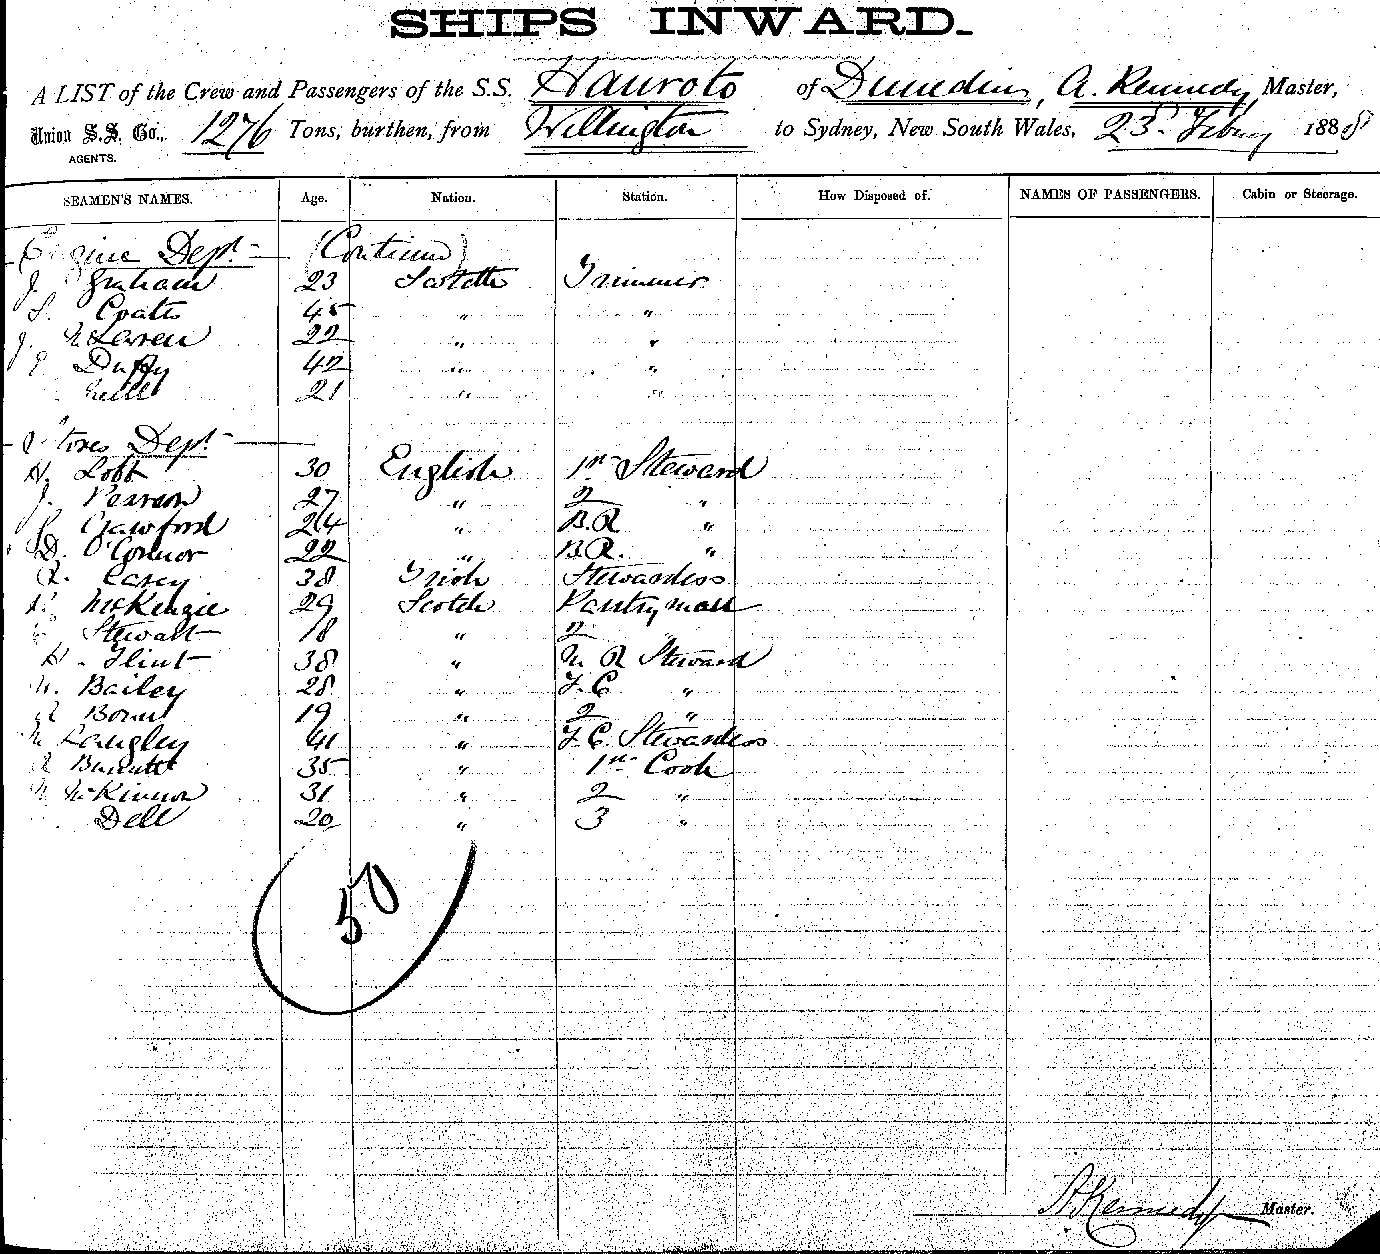 SHIPS INWARD.
A LIST of the Crew and Passengers of the S.S. Hauroto of Dunedin, A. Kennedy, Master,
Union S.S. Co., 1276 Tons, burthen, from Wellington to Sydney, New South Wales, 23rd Febry 1888
AGENTS.
SEAMEN'S NAMES. Age. Nation. Station. How Disposed of. NAMES OF PASSENGERS. Cabin or Steerage.
Engine Dept (Continued)
J. Graham 23 Scotch Trimmer
S. Coats 45 " "
J. McLaren 22 " "
Duffy 42 " "
Neill 21 " "
Stores Dept
H. Lobb 30 English 1st Steward
J. Pearson 27 " 2 "
Crawford 24 " B.R "
D. O'Connor 22 " B.R. "
Casey 38 Irish Stewardess
McKenzie 29 Scotch Pantryman
Stewart 18 " 2 "
H. Flint 38 " M. R Steward
Bailey 28 " F.C "
19 " 2 "
Langley 41 " F.C. Stewardess
35 " 1st Cook
McKinnon 31 " 2 "
Dell 20 " 3 "
50
A Kennedy Master.